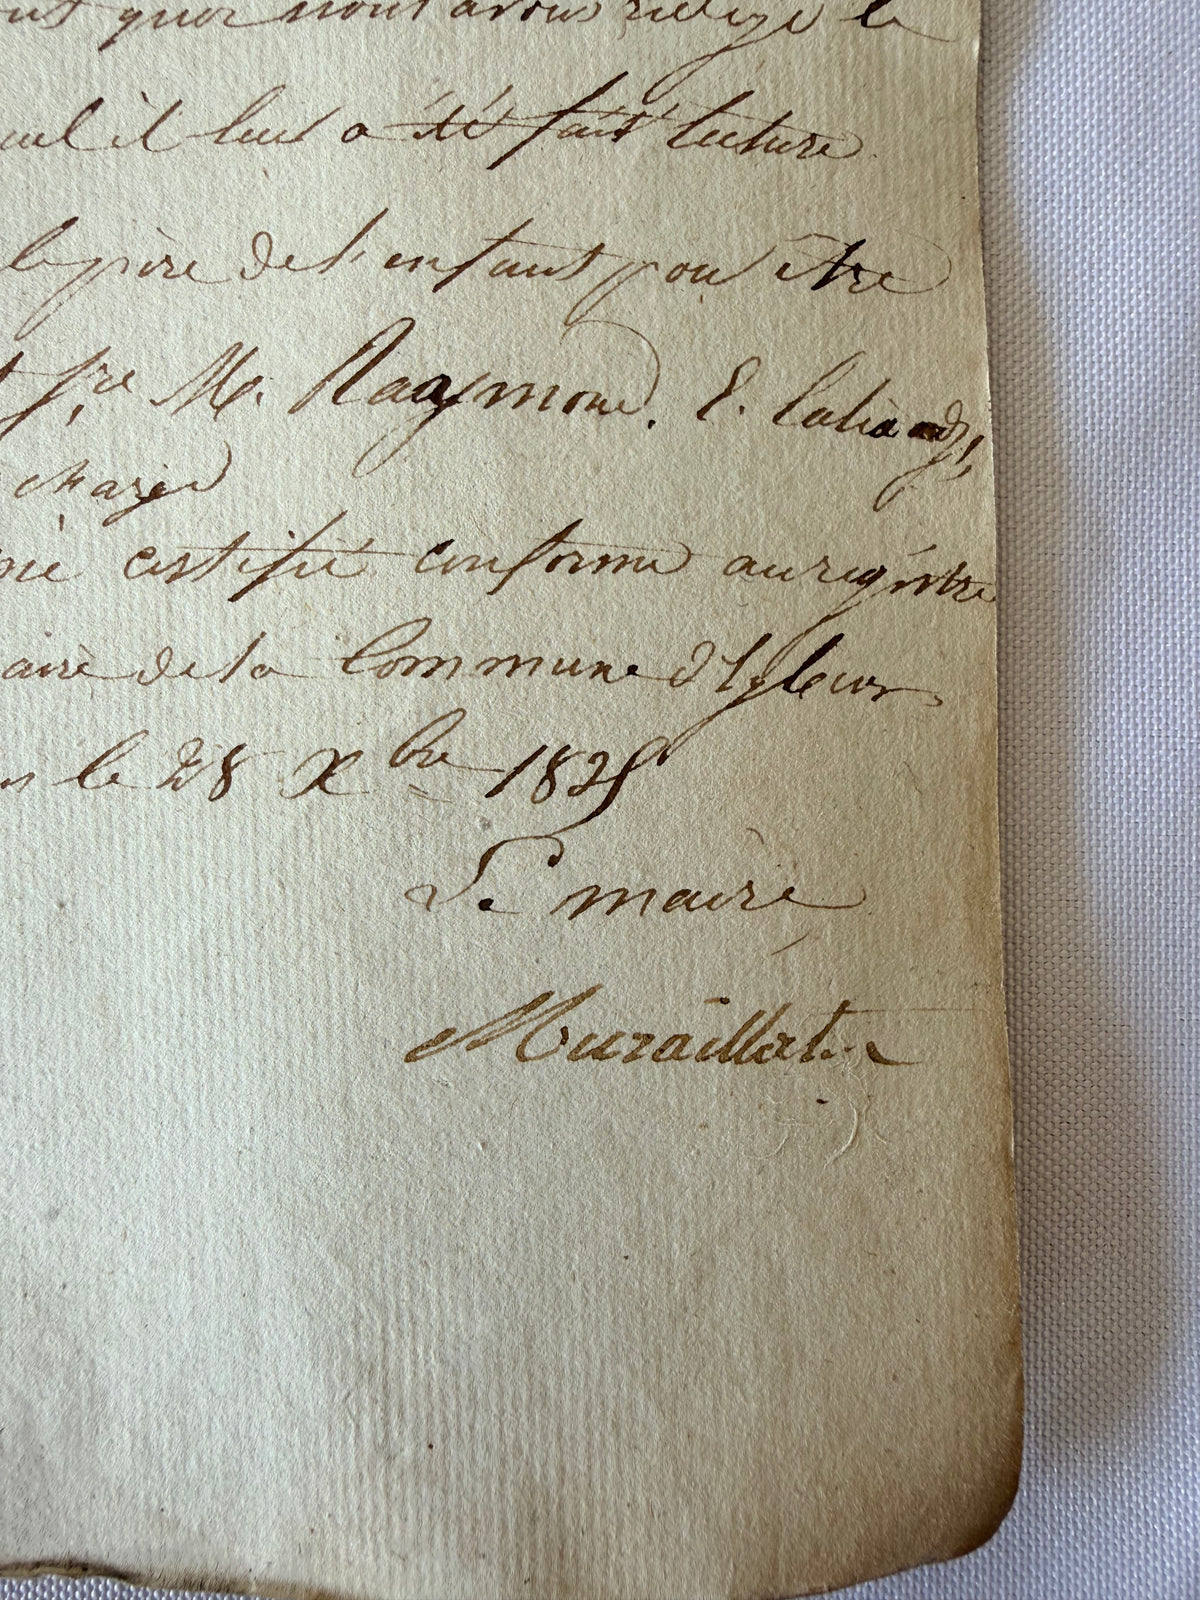 quoi nous avons rédigé le
il leur a été fait lecture
le père de l'enfant pour être
M. Raymond. E.
chargé
certifié conforme au registre
aire de la Commune d'
le 28 Xbre 1825
Le maire
Muraillat